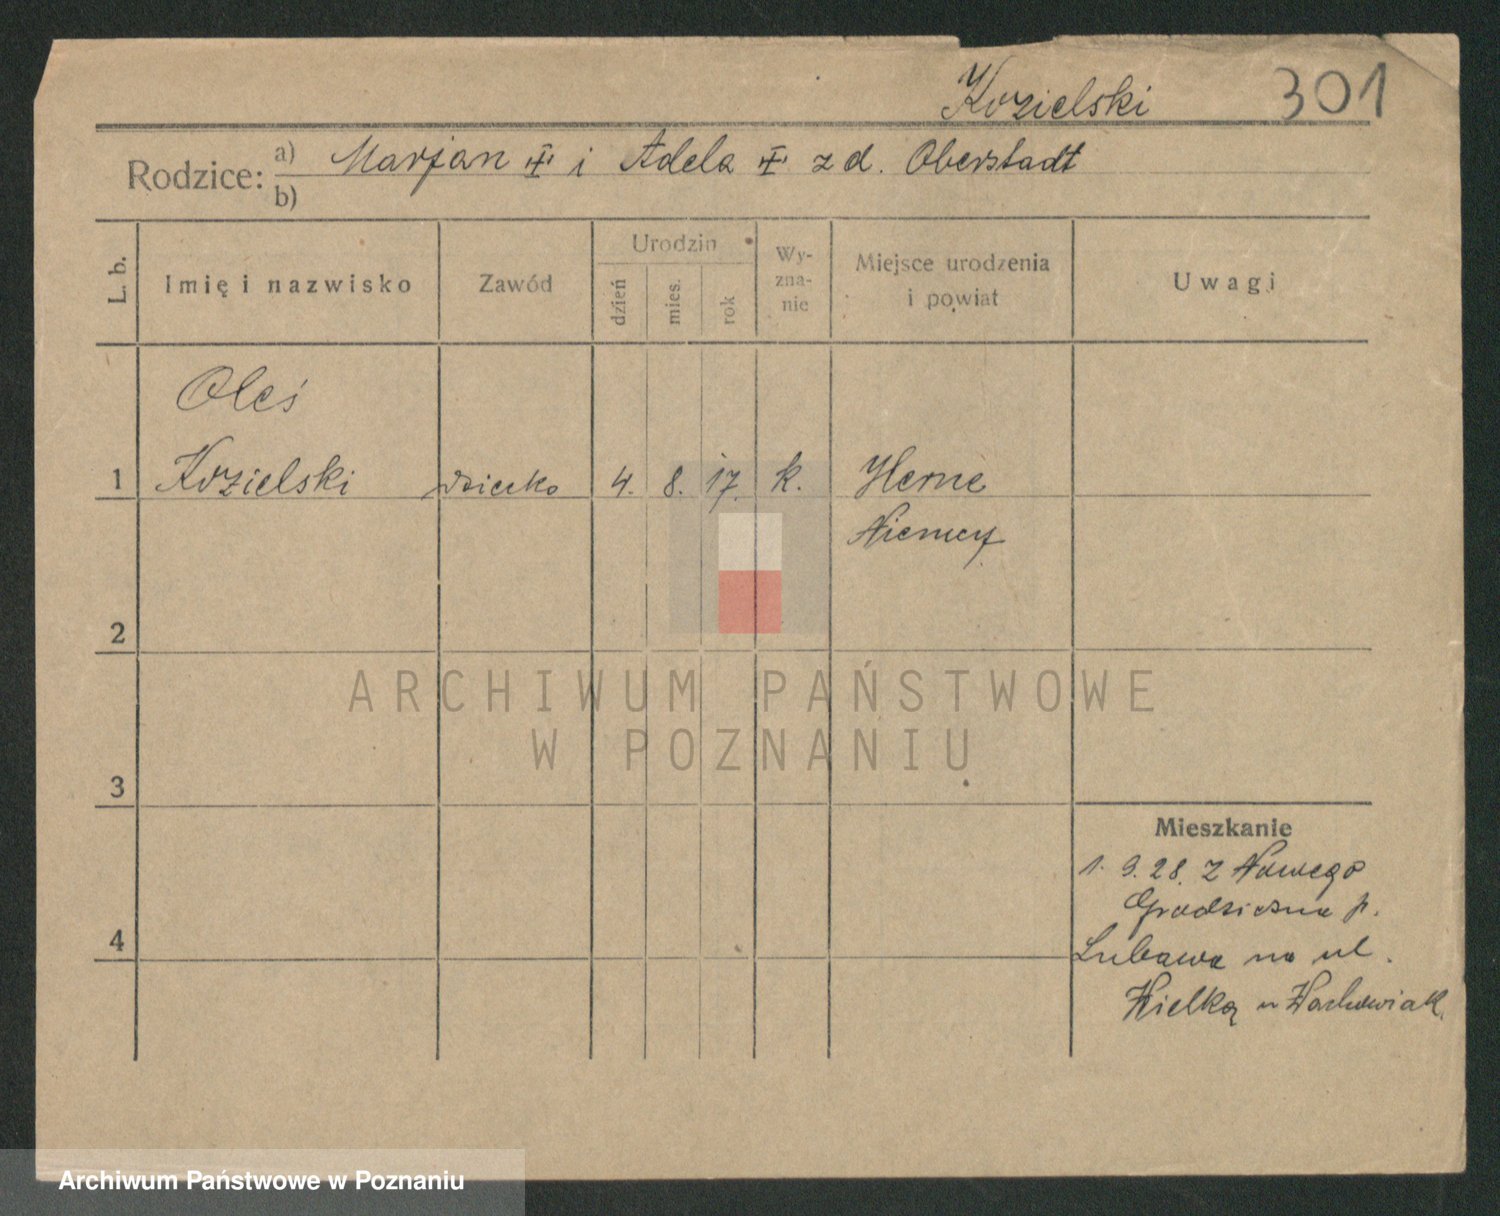 Kozielski 301
Rodzice: a) Marjan i Adela z d. Oberstadt
b)
L. b.
Imię i nazwisko
Zawód
Urodzin
dzień
mies.
rok
Wy-
zna-
nie
Miejsce urodzenia
i powiat
Uwagi
Oleś
1 Kozielski dziecko 4. 8. 17. k. Herne
Niemcy
2
3
4
Mieszkanie
1. 9. 28. z Nowego
Grodziczna p.
Lubawa na ul.
Wielką u Wachowiak.
ARCHIWUM PAŃSTWOWE
W POZNANIU
Archiwum Państwowe w Poznaniu